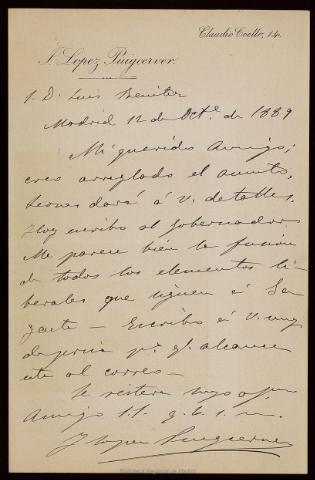 Claudio Coello, 14.
J. Lopez Puigcerver.
S. D. Luis Benitez
Madrid 12 de Octe. de 1889
Mi querido Amigo;
creo arreglado el asunto,
dará á V. detalles.
Hoy escribo al gobernador
Me parece bien la fusion
de todos los elementos li-
berales que siguen á Sa-
gasta - Escribo á V. muy
de prisa pa. qe. alcance
este al correo -
Se reitera suyo
Amigo s.s. q. b. s. m.
J Lopez Puigcerver
Biblioteca Nacional de España